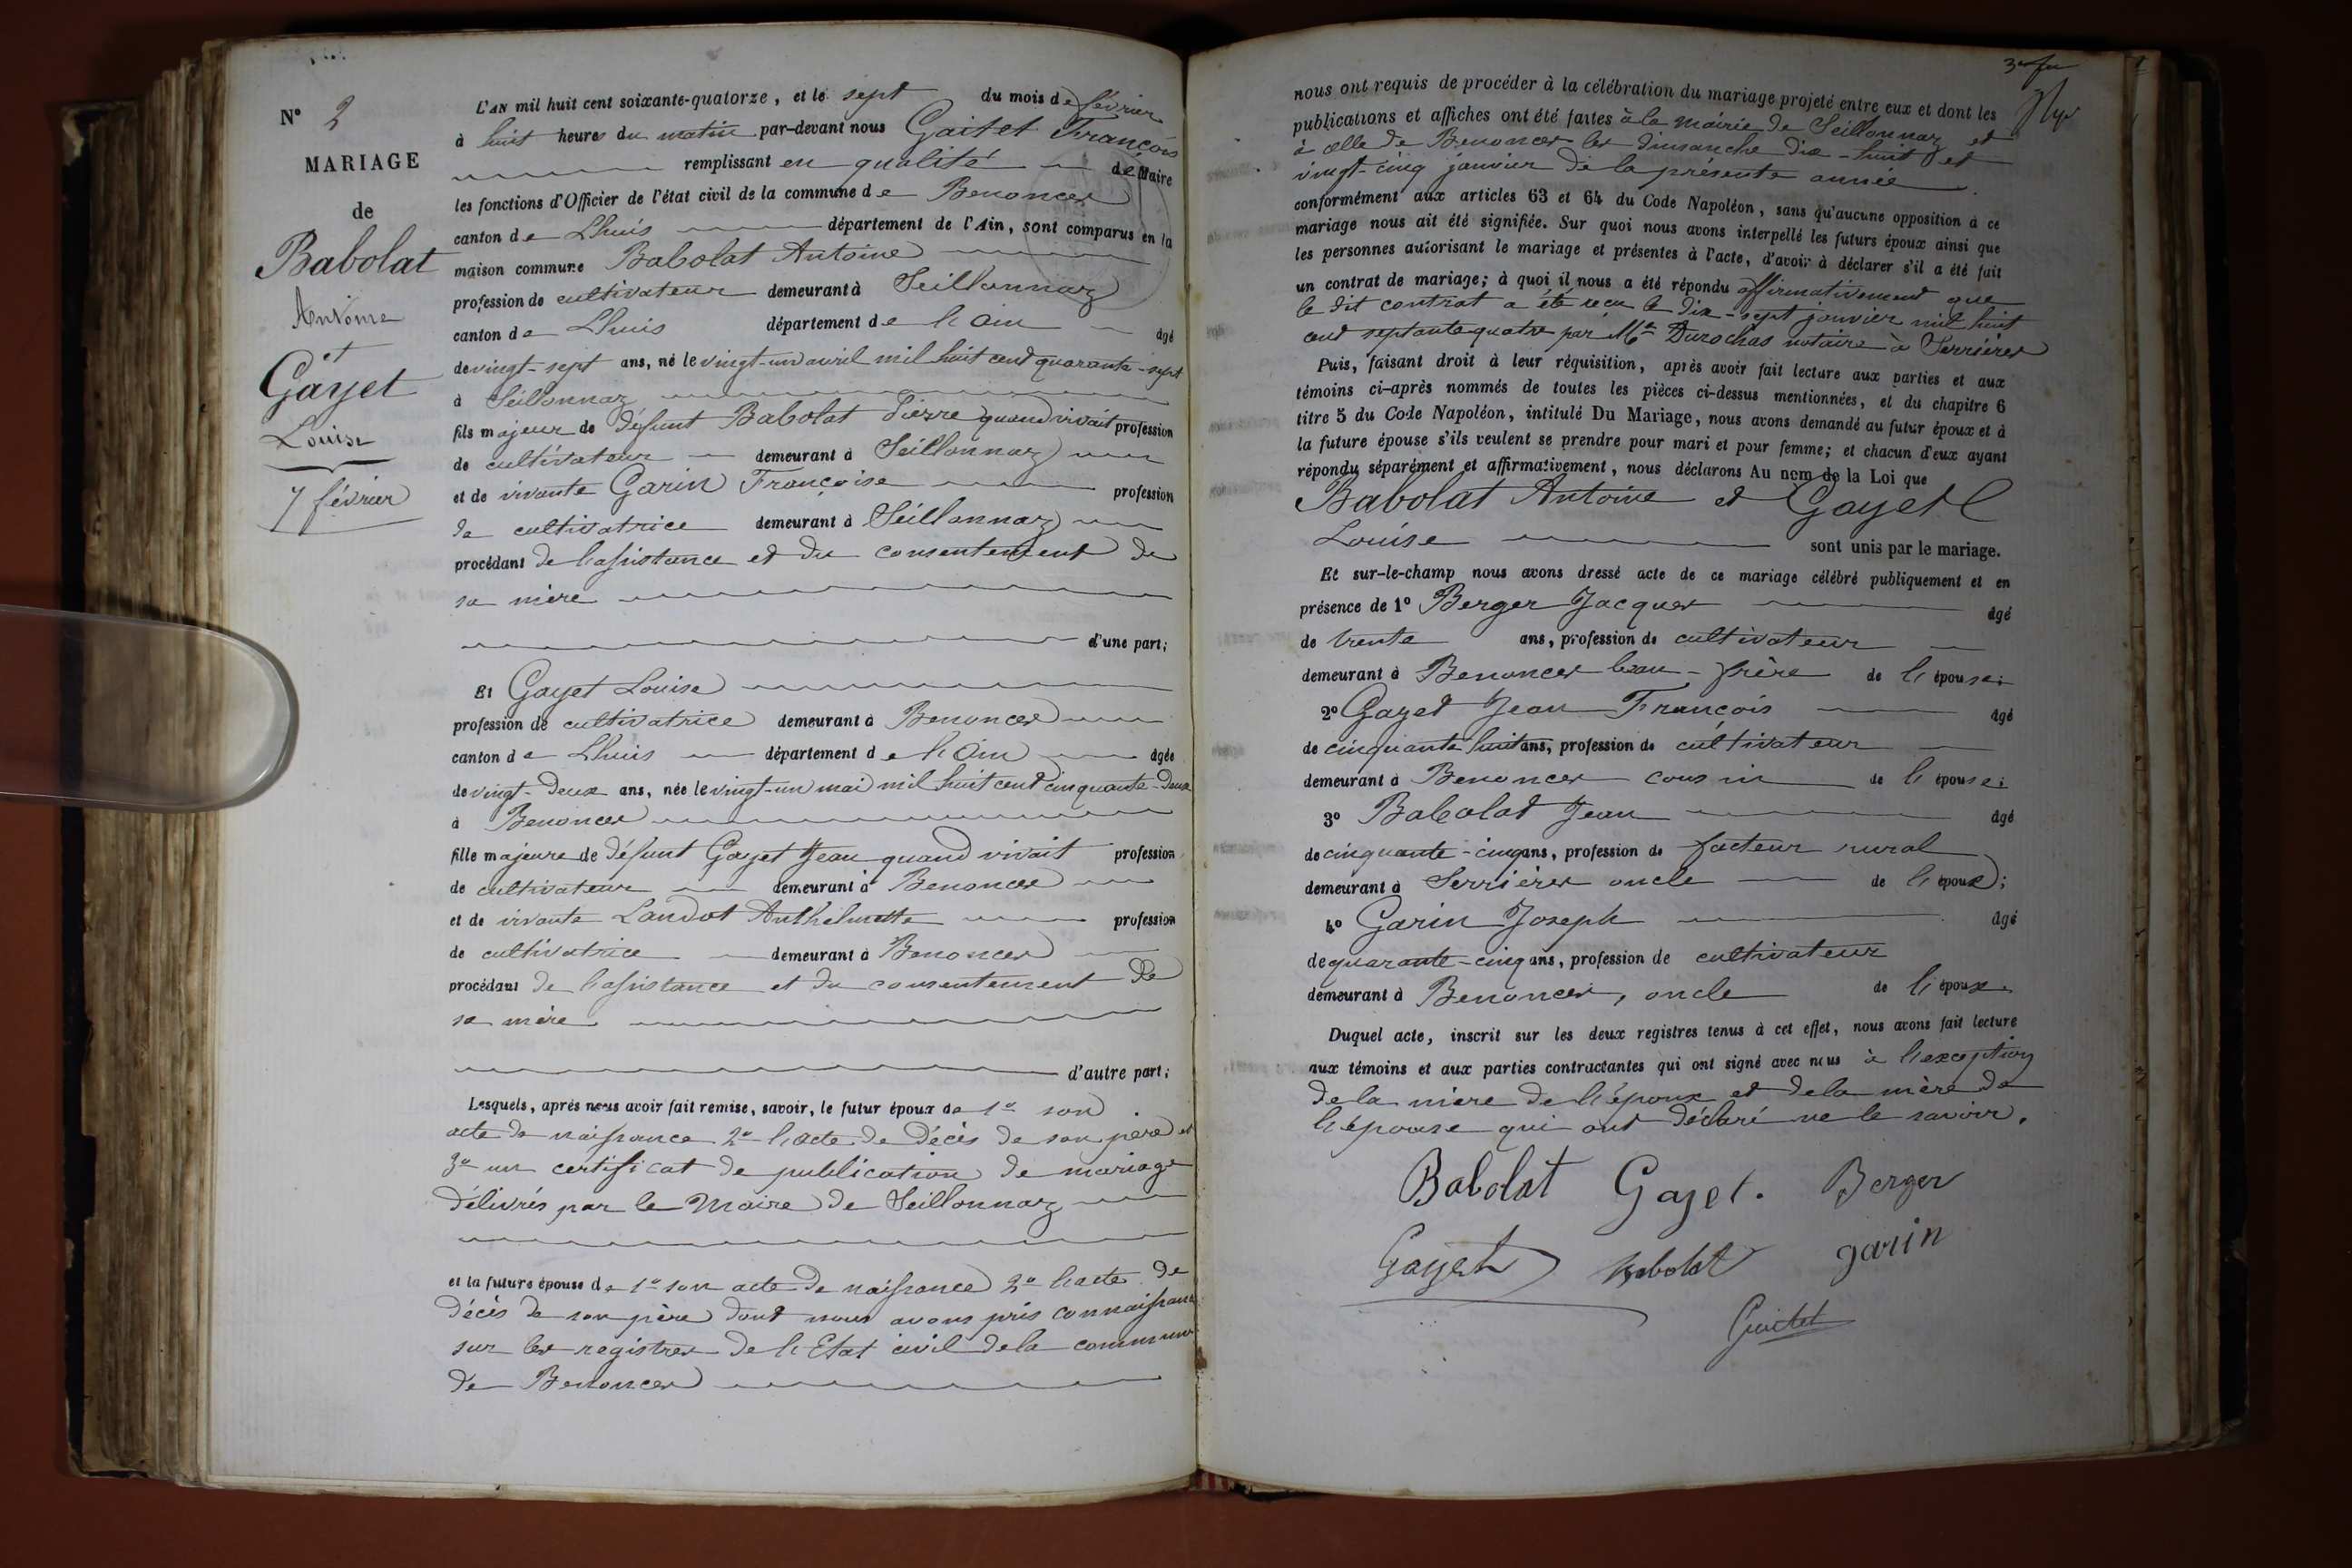 N° 2
MARIAGE
de
Babolat
Antoine
et
Gayet
Louise
7 février
L'AN mil huit cent soixante-quatorze, et le sept du mois de février
à huit heures du matin par-devant nous Gaitet François
remplissant en qualité de Maire
les fonctions d'Officier de l'état civil de la commune de Benonces
canton de Lhuis département de l'Ain, sont comparus en la
maison commune Babolat Antoine
profession de cultivateur demeurant à Seillonnaz
canton de Lhuis département de l'Ain âgé
de vingt-sept ans, né le vingt-un avril mil huit cent quarante-sept
à Seillonnaz
fils majeur de défunt Babolat Pierre quand vivait profession
de cultivateur demeurant à Seillonnaz
et de vivante Garin Françoise profession
de cultivatrice demeurant à Seillonnaz
procédant de l'assistance et du consentement de
sa mère
d'une part;
Et Gayet Louise
profession de cultivatrice demeurant à Benonces
canton de Lhuis département de l'Ain âgée
de vingt-deux ans, née le vingt-un mai mil huit cent cinquante-deux
à Benonces
fille majeure de défunt Gayet Jean quand vivait profession
de cultivateur demeurant à Benonces
et de vivante Landot Anthelmette profession
de cultivatrice demeurant à Benonces
procédant de l'assistance et du consentement de
sa mère
d'autre part;
Lesquels, après nous avoir fait remise, savoir, le futur époux de 1° son
acte de naissance 2° l'acte de décès de son père et
3° un certificat de publication de mariage
délivrés par le Maire de Seillonnaz
et la future épouse de 1° son acte de naissance 2° l'acte de
décès de son père dont nous avons pris connaissance
sur les registres de l'Etat civil de la commune
de Benonces
nous ont requis de procéder à la célébration du mariage projeté entre eux et dont les
publications et affiches ont été faites à la mairie de Seillonnaz et
à celle de Benonces les dimanche dix-huit et
vingt-cinq janvier de la présente année
conformément aux articles 63 et 64 du Code Napoléon, sans qu'aucune opposition à ce
mariage nous ait été signifiée. Sur quoi nous avons interpellé les futurs époux ainsi que
les personnes autorisant le mariage et présentes à l'acte, d'avoir à déclarer s'il a été fait
un contrat de mariage; à quoi il nous a été répondu affirmativement que
le dit contrat a été reçu le dix-sept janvier mil huit
cent septante quatre par Me Durochas notaire à Serrières
Puis, faisant droit à leur réquisition, après avoir fait lecture aux parties et aux
témoins ci-après nommés de toutes les pièces ci-dessus mentionnées, et du chapitre 6
titre 5 du Code Napoléon, intitulé Du Mariage, nous avons demandé au futur époux et à
la future épouse s'ils veulent se prendre pour mari et pour femme; et chacun d'eux ayant
répondu séparément et affirmativement, nous déclarons Au nom de la Loi que
Babolat Antoine et Gayet
Louise sont unis par le mariage.
Et sur-le-champ nous avons dressé acte de ce mariage célébré publiquement et en
présence de 1° Berger Jacques âgé
de trente ans, profession de cultivateur
demeurant à Benonces beau-frère de l'épouse;
2° Gayet Jean François âgé
de cinquante huit ans, profession de cultivateur
demeurant à Benonces cousin de l'épouse;
3° Babolat Jean âgé
de cinquante-cinq ans, profession de facteur rural
demeurant à Serrières oncle de l'époux;
4° Garin Joseph âgé
de quarante-cinq ans, profession de cultivateur
demeurant à Benonces, oncle de l'époux.
Duquel acte, inscrit sur les deux registres tenus à cet effet, nous avons fait lecture
aux témoins et aux parties contractantes qui ont signé avec nous à l'exception
de la mère de l'époux et de la mère de
l'épouse qui ont déclaré ne le savoir.
Babolat Gayet. Berger
Gayet Babolat garin
Gaitet